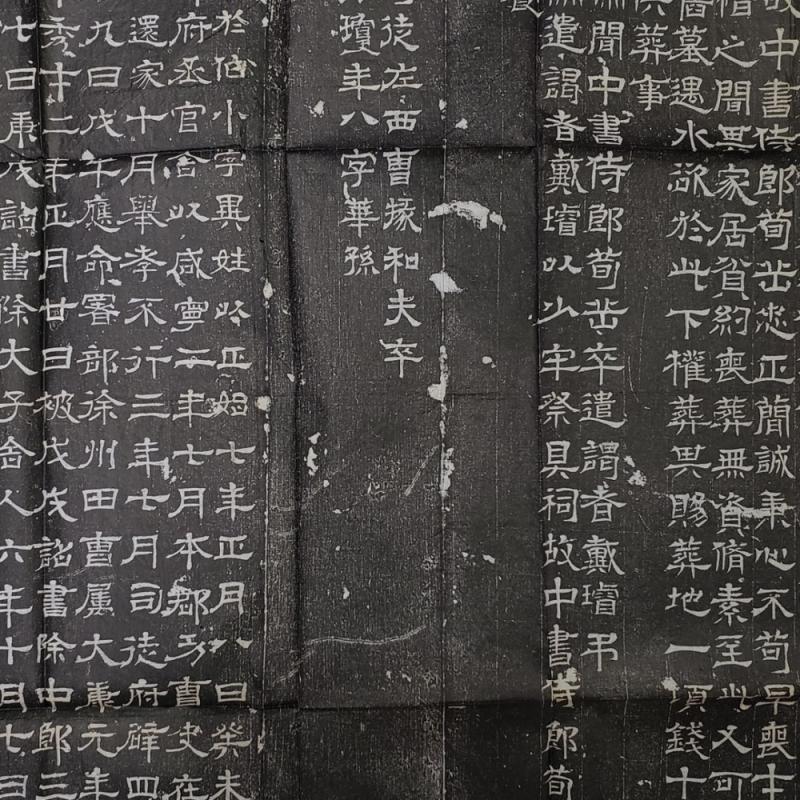 中書侍郎荀岳忠正簡誠秉心不苟早喪
惜之聞其家居貧約喪葬無資脩素至此又可
舊墓遇水欲於此下權葬其賜葬地一頃錢十
供葬事
聞中書侍郎荀岳卒遣謁者戴璿弔
遣謁者戴璿以少牢祭具祠故中書侍郎荀
徒左西曹掾和夫卒
瓊年八字華孫
於伯小字異姓以正始七年正月八日癸未
府丞官舍以咸寧二年七月本郡功曹史在
還家十月舉孝不行三年七月司徒府辟四
九日戊午應命署部徐州田曹屬大康元年
秀才二年正月廿日被戊戌詔書除中郎三
七日庚戌詔書除大子舍人六年十月七日